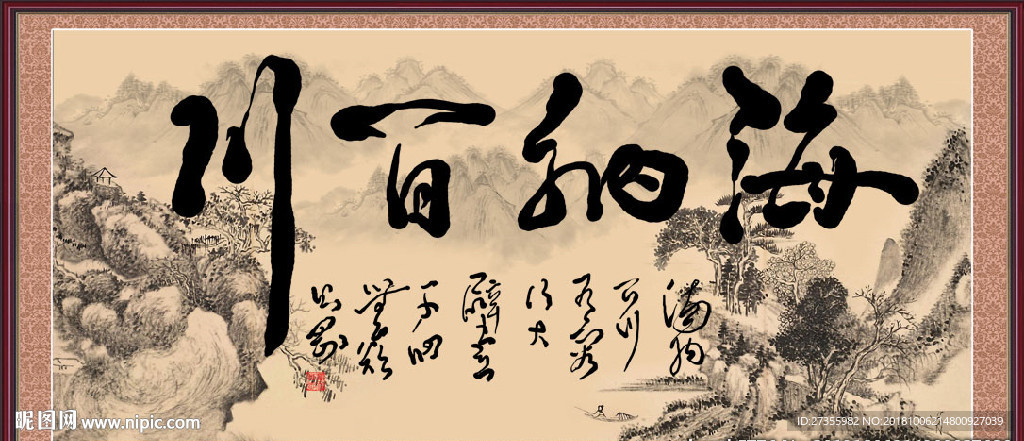 海纳百川
海纳
百川
有容
乃大
壁立
千仞
無欲
则刚
昵图网 www.nipic.com
ID:27355982 NO:20181006214800927039